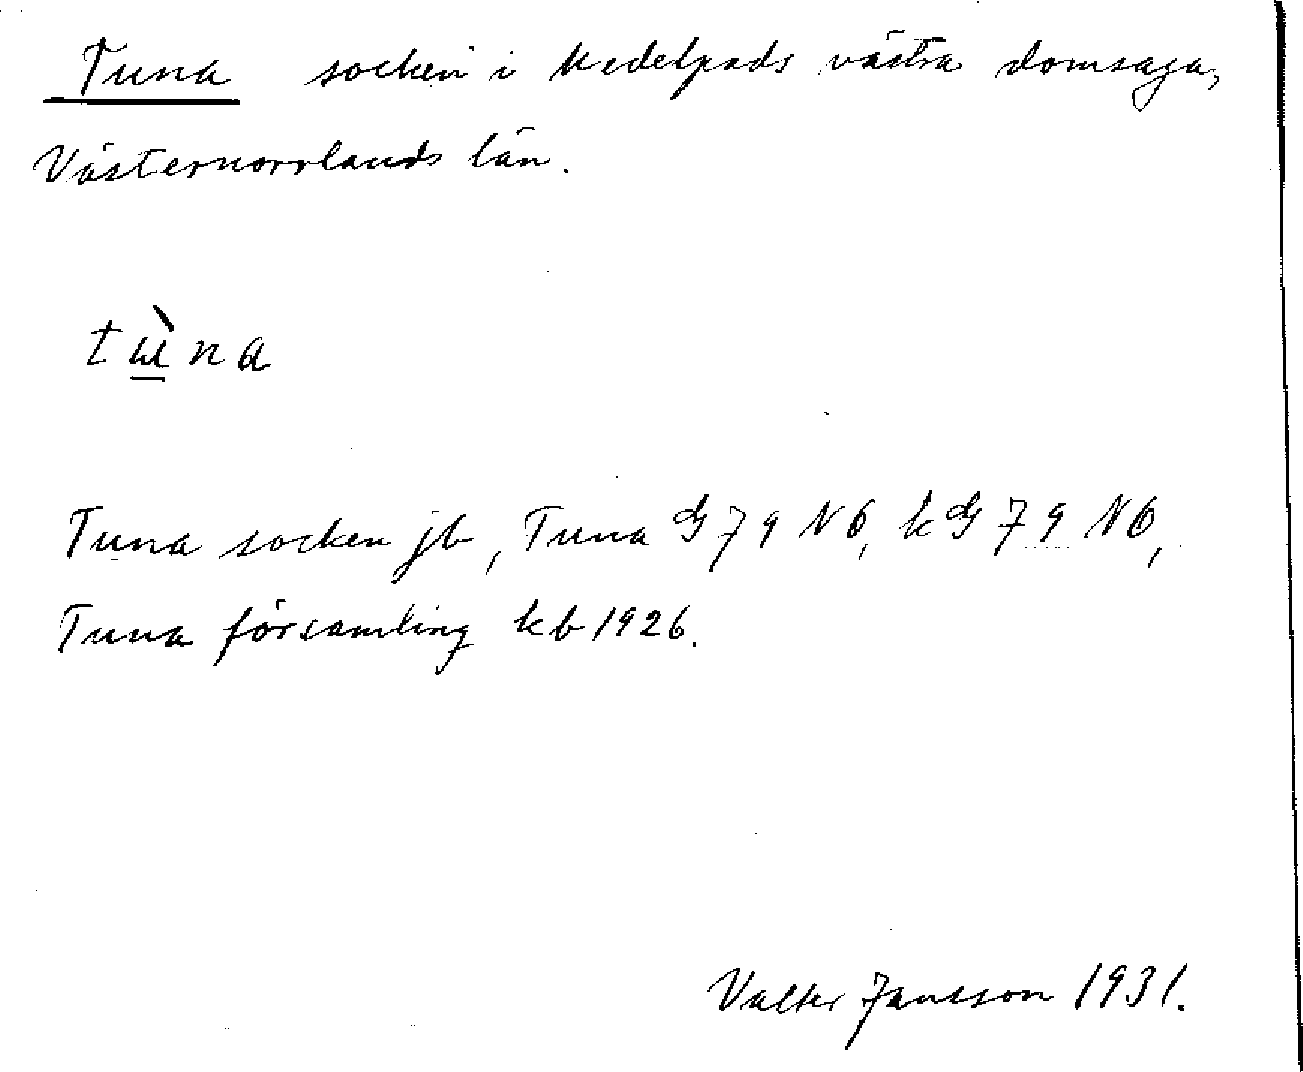 Tuna socken i Medelpads västra domsaga,
Västernorrlands län.
tɯ̲̀na
Tuna socken jb, Tuna G 79 NÖ, k G 79 NÖ,
Tuna församling kb 1926.
Valter Jansson 1931.